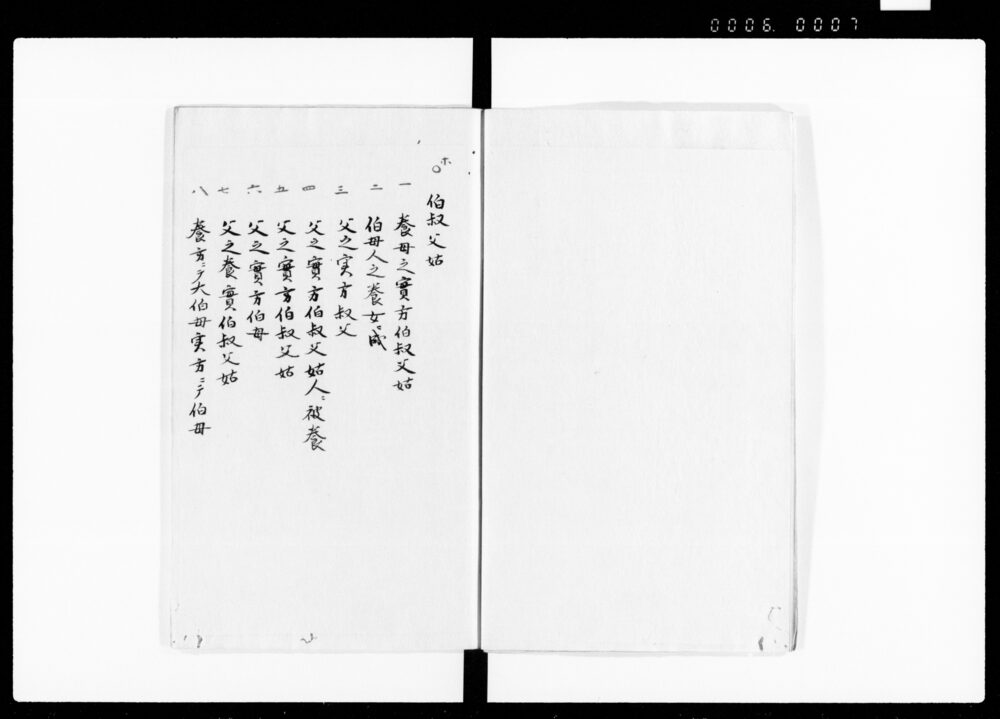 0006. 0007
ホ
伯叔父姑
一 養母之實方伯叔父姑
二 伯母人之養女ニ成
三 父之実方叔父
四 父之實方伯叔父姑人ニ被養
五 父之實方伯叔父姑
六 父之實方伯母
七 父之養實伯叔父姑
八 養方ニテ大伯母実方ニテ伯母